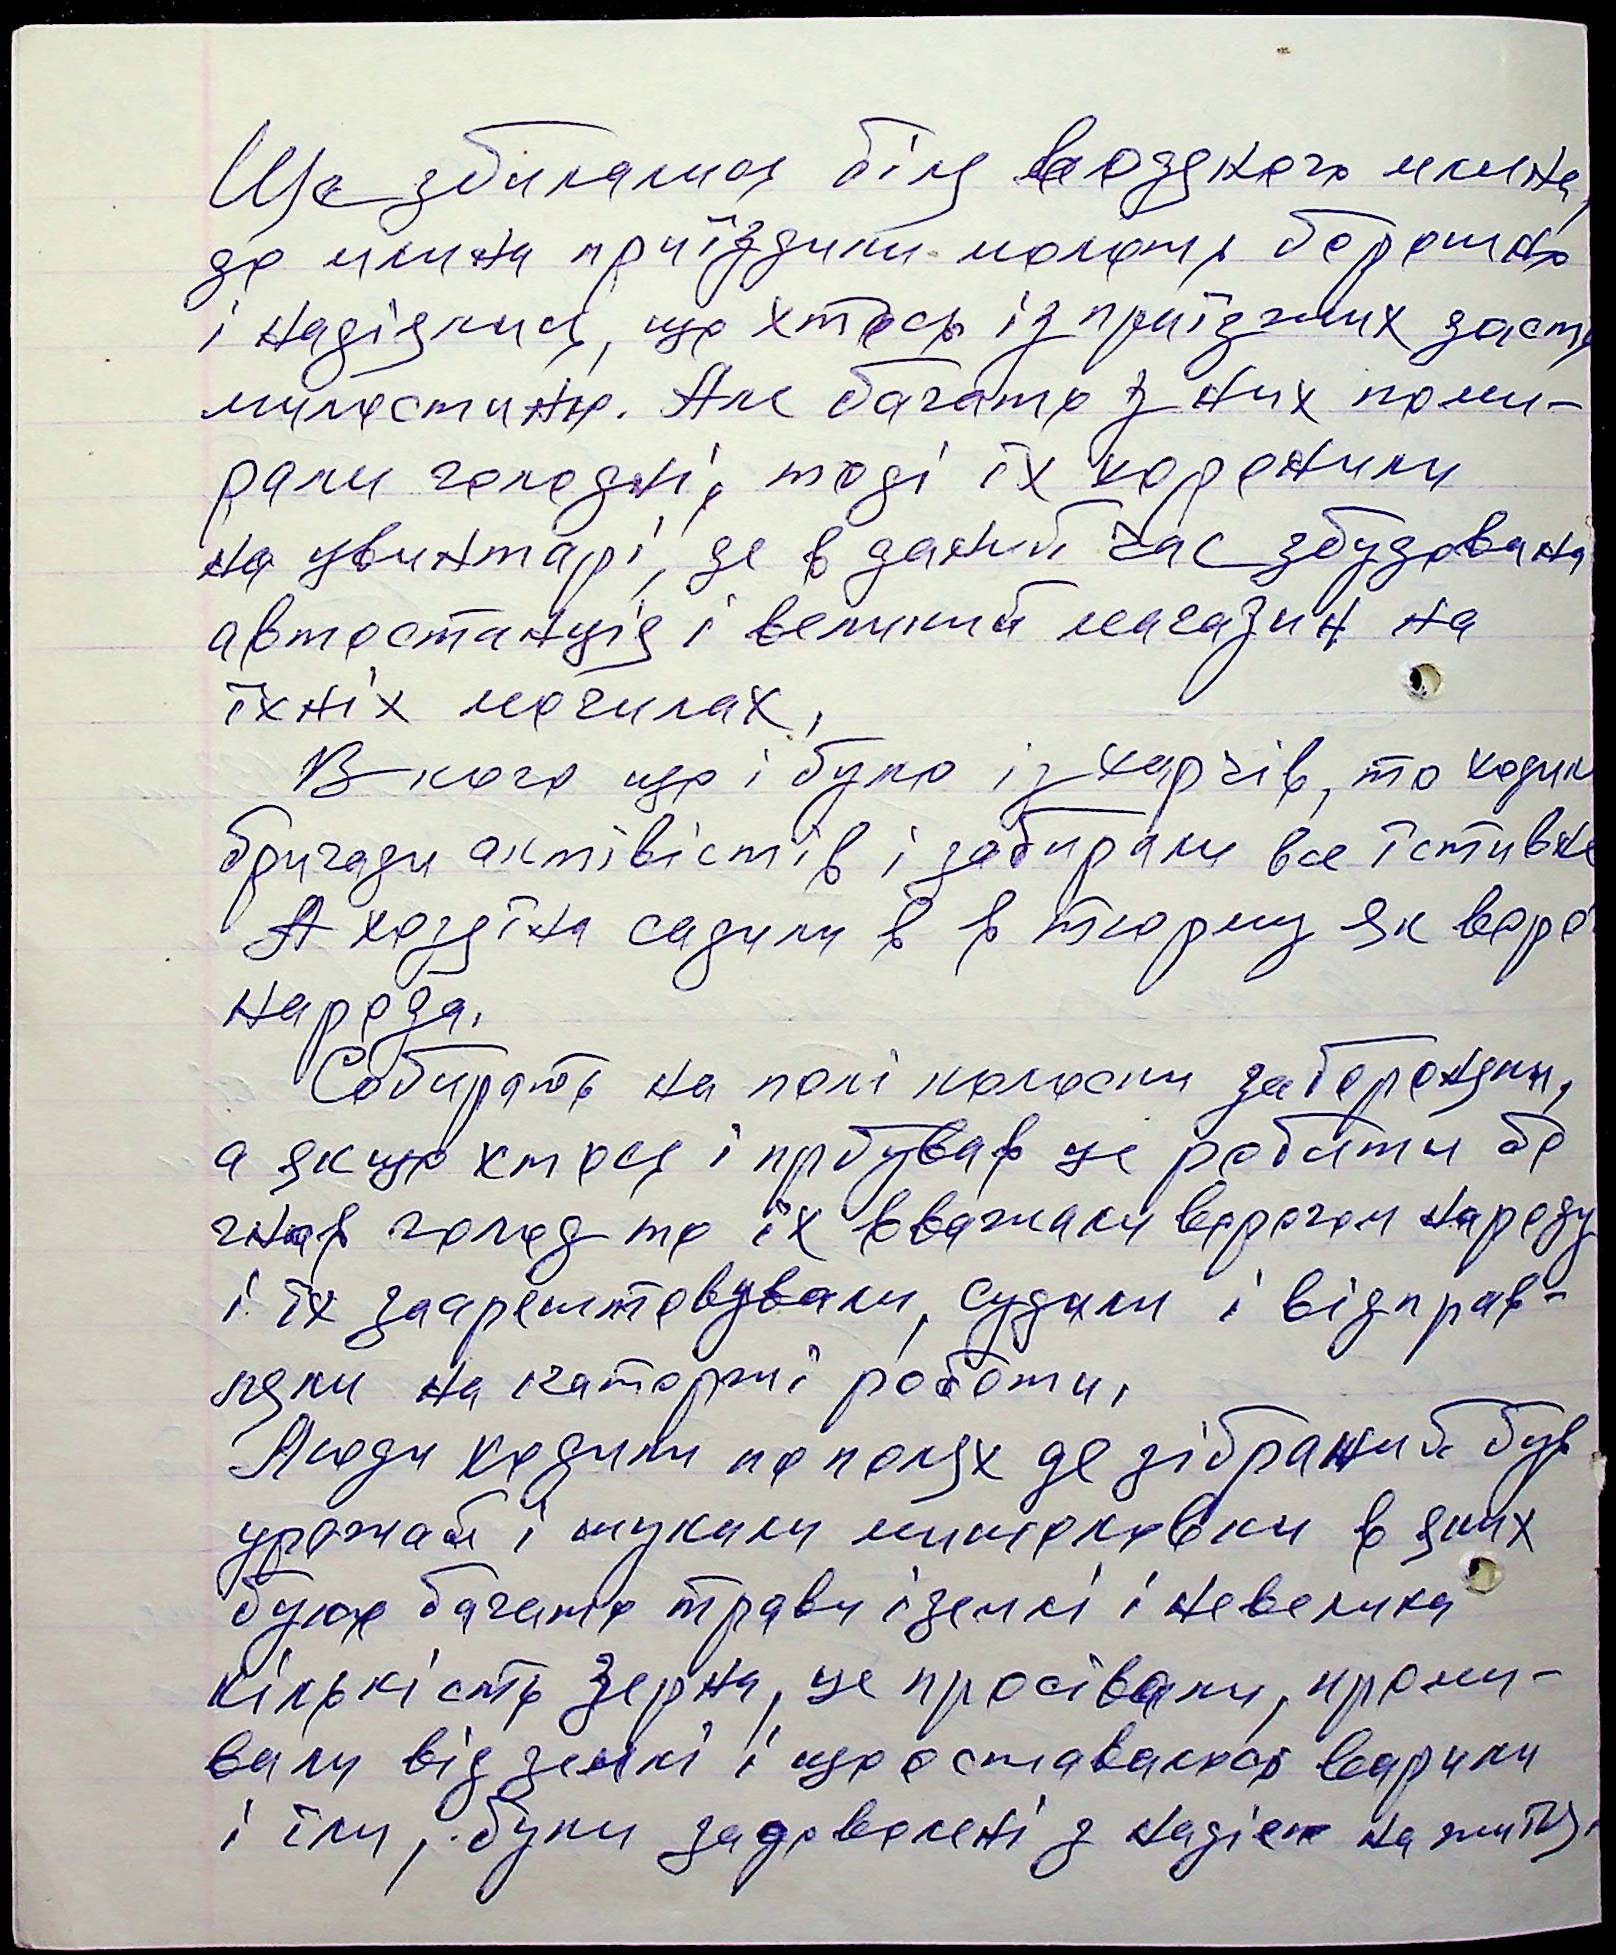 Ще збиралися біля водяного млина,
до млина приїздили молоти борошно
і надіялися, що хтось із приїзжих дасть
милостиню. Але багато з них поми-
рали голодні, тоді їх хоронили
на цвинтарі, де в даний час збудована
автостанція і великий магазин на
їхніх могилах,
В кого що і було із харчів, то ходили
бригади актівістів і забирали все їстивне
А хозяїна садили в в тюрму як воро
народа.
Собирать на полі колоски забороняли,
а якщо хтось і прбував це робити бо
гнав голод то їх вважали ворогом народу
і їх заарештовували, судили і відправ-
ляли на каторжні роботи,
Люди ходили по полях де зібраний був
урожай і шукали в яких
було багато трави і землі і невелика
кількість зерна, це просівали, проми-
вали від землі і що оставалось варили
і їли, були задоволені з надією на життя.